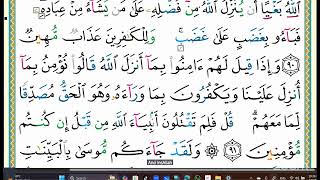 ٱللَّهُ بَغْيًا أَن يُنَزِّلَ ٱللَّهُ مِن فَضْلِهِۦ عَلَىٰ مَن يَشَآءُ مِنْ عِبَادِهِۦ
فَبَآءُو بِغَضَبٍ عَلَىٰ غَضَبٍ وَلِلْكَٰفِرِينَ عَذَابٌ مُّهِينٌ
٩٠ وَإِذَا قِيلَ لَهُمْ ءَامِنُوا۟ بِمَآ أَنزَلَ ٱللَّهُ قَالُوا۟ نُؤْمِنُ بِمَآ
أُنزِلَ عَلَيْنَا وَيَكْفُرُونَ بِمَا وَرَآءَهُۥ وَهُوَ ٱلْحَقُّ مُصَدِّقًا
لِّمَا مَعَهُمْ قُلْ فَلِمَ تَقْتُلُونَ أَنۢبِيَآءَ ٱللَّهِ مِن قَبْلُ إِن كُنتُم
مُّؤْمِنِينَ ٩١ وَلَقَدْ جَآءَكُم مُّوسَىٰ بِٱلْبَيِّنَٰتِ